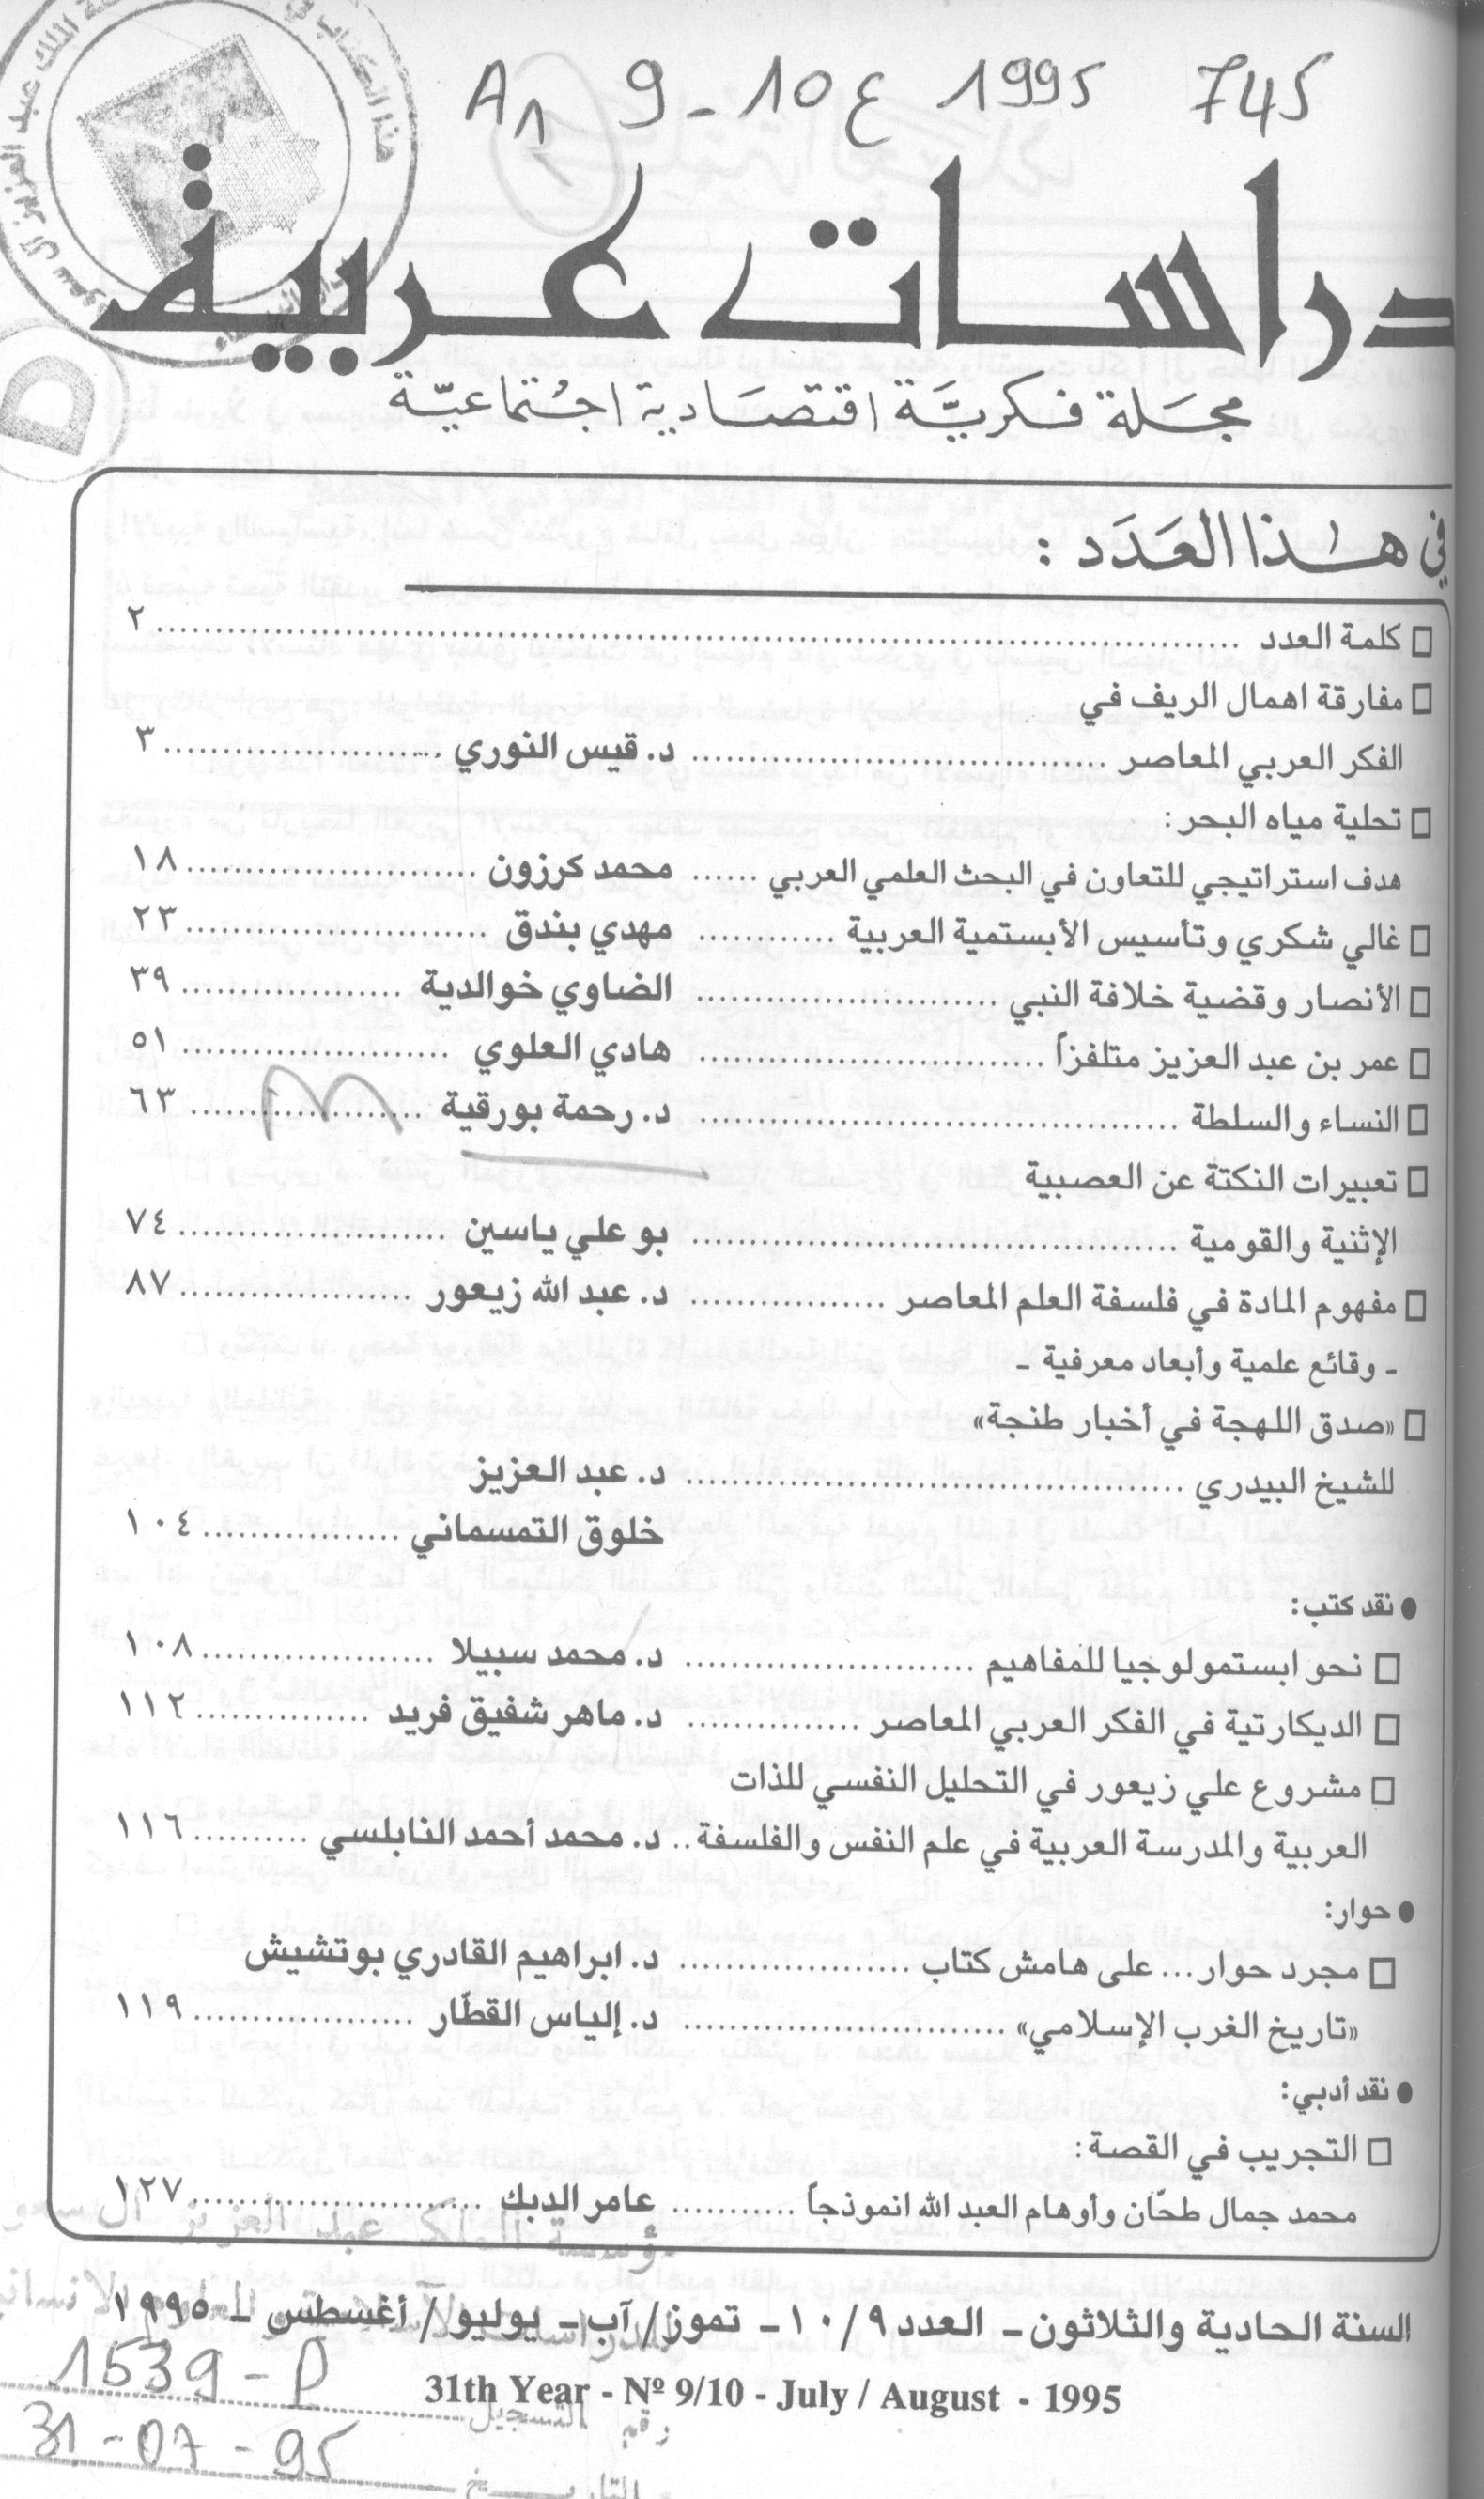 A1 9-10 ع 1995 745
دراسات عربية
مجلة فكريّة اقتصادية اجتماعيّة
في هذا العدد :
□ كلمة العدد ........ ٢
□ مفارقة اهمال الريف في
الفكر العربي المعاصر ........ د. قيس النوري ........ ٣
□ تحلية مياه البحر:
هدف استراتيجي للتعاون في البحث العلمي العربي ...... محمد كرزون ........ ١٨
□ غالي شكري وتأسيس الأبستمية العربية ........ مهدي بندق ........ ٢٣
□ الأنصار وقضية خلافة النبي ........ الضاوي خوالدية ........ ٣٩
□ عمر بن عبد العزيز متلفزاً ........ هادي العلوي ........ ٥١
□ النساء والسلطة ........ د. رحمة بورقية ........ ٦٣
□ تعبيرات النكتة عن العصبية
الإثنية والقومية ........ بو علي ياسين ........ ٧٤
□ مفهوم المادة في فلسفة العلم المعاصر ........ د. عبد الله زيعور ........ ٨٧
- وقائع علمية وأبعاد معرفية -
□ «صدق اللهجة في أخبار طنجة»
للشيخ البيدري ........ د. عبد العزيز
خلوق التمسماني ........ ١٠٤
● نقد كتب:
□ نحو ابستمولوجيا للمفاهيم ........ د. محمد سبيلا ........ ١٠٨
□ الديكارتية في الفكر العربي المعاصر ........ د. ماهر شفيق فريد ........ ١١٢
□ مشروع علي زيعور في التحليل النفسي للذات
العربية والمدرسة العربية في علم النفس والفلسفة .. د. محمد أحمد النابلسي ........ ١١٦
● حوار:
□ مجرد حوار... على هامش كتاب ........ د. ابراهيم القادري بوتشيش
«تاريخ الغرب الإسلامي» ........ د. إلياس القطّار ........ ١١٩
● نقد أدبي:
□ التجريب في القصة:
محمد جمال طحّان وأوهام العبد الله انموذجاً ........ عامر الدبك ........ ١٢٧
السنة الحادية والثلاثون - العدد ١٠/٩ - تموز/ آب - يوليو/ أغسطس - ١٩٩٥
31th Year - Nº 9/10 - July / August - 1995
رقم التسجيل 1539-P
التاريخ 31-07-95